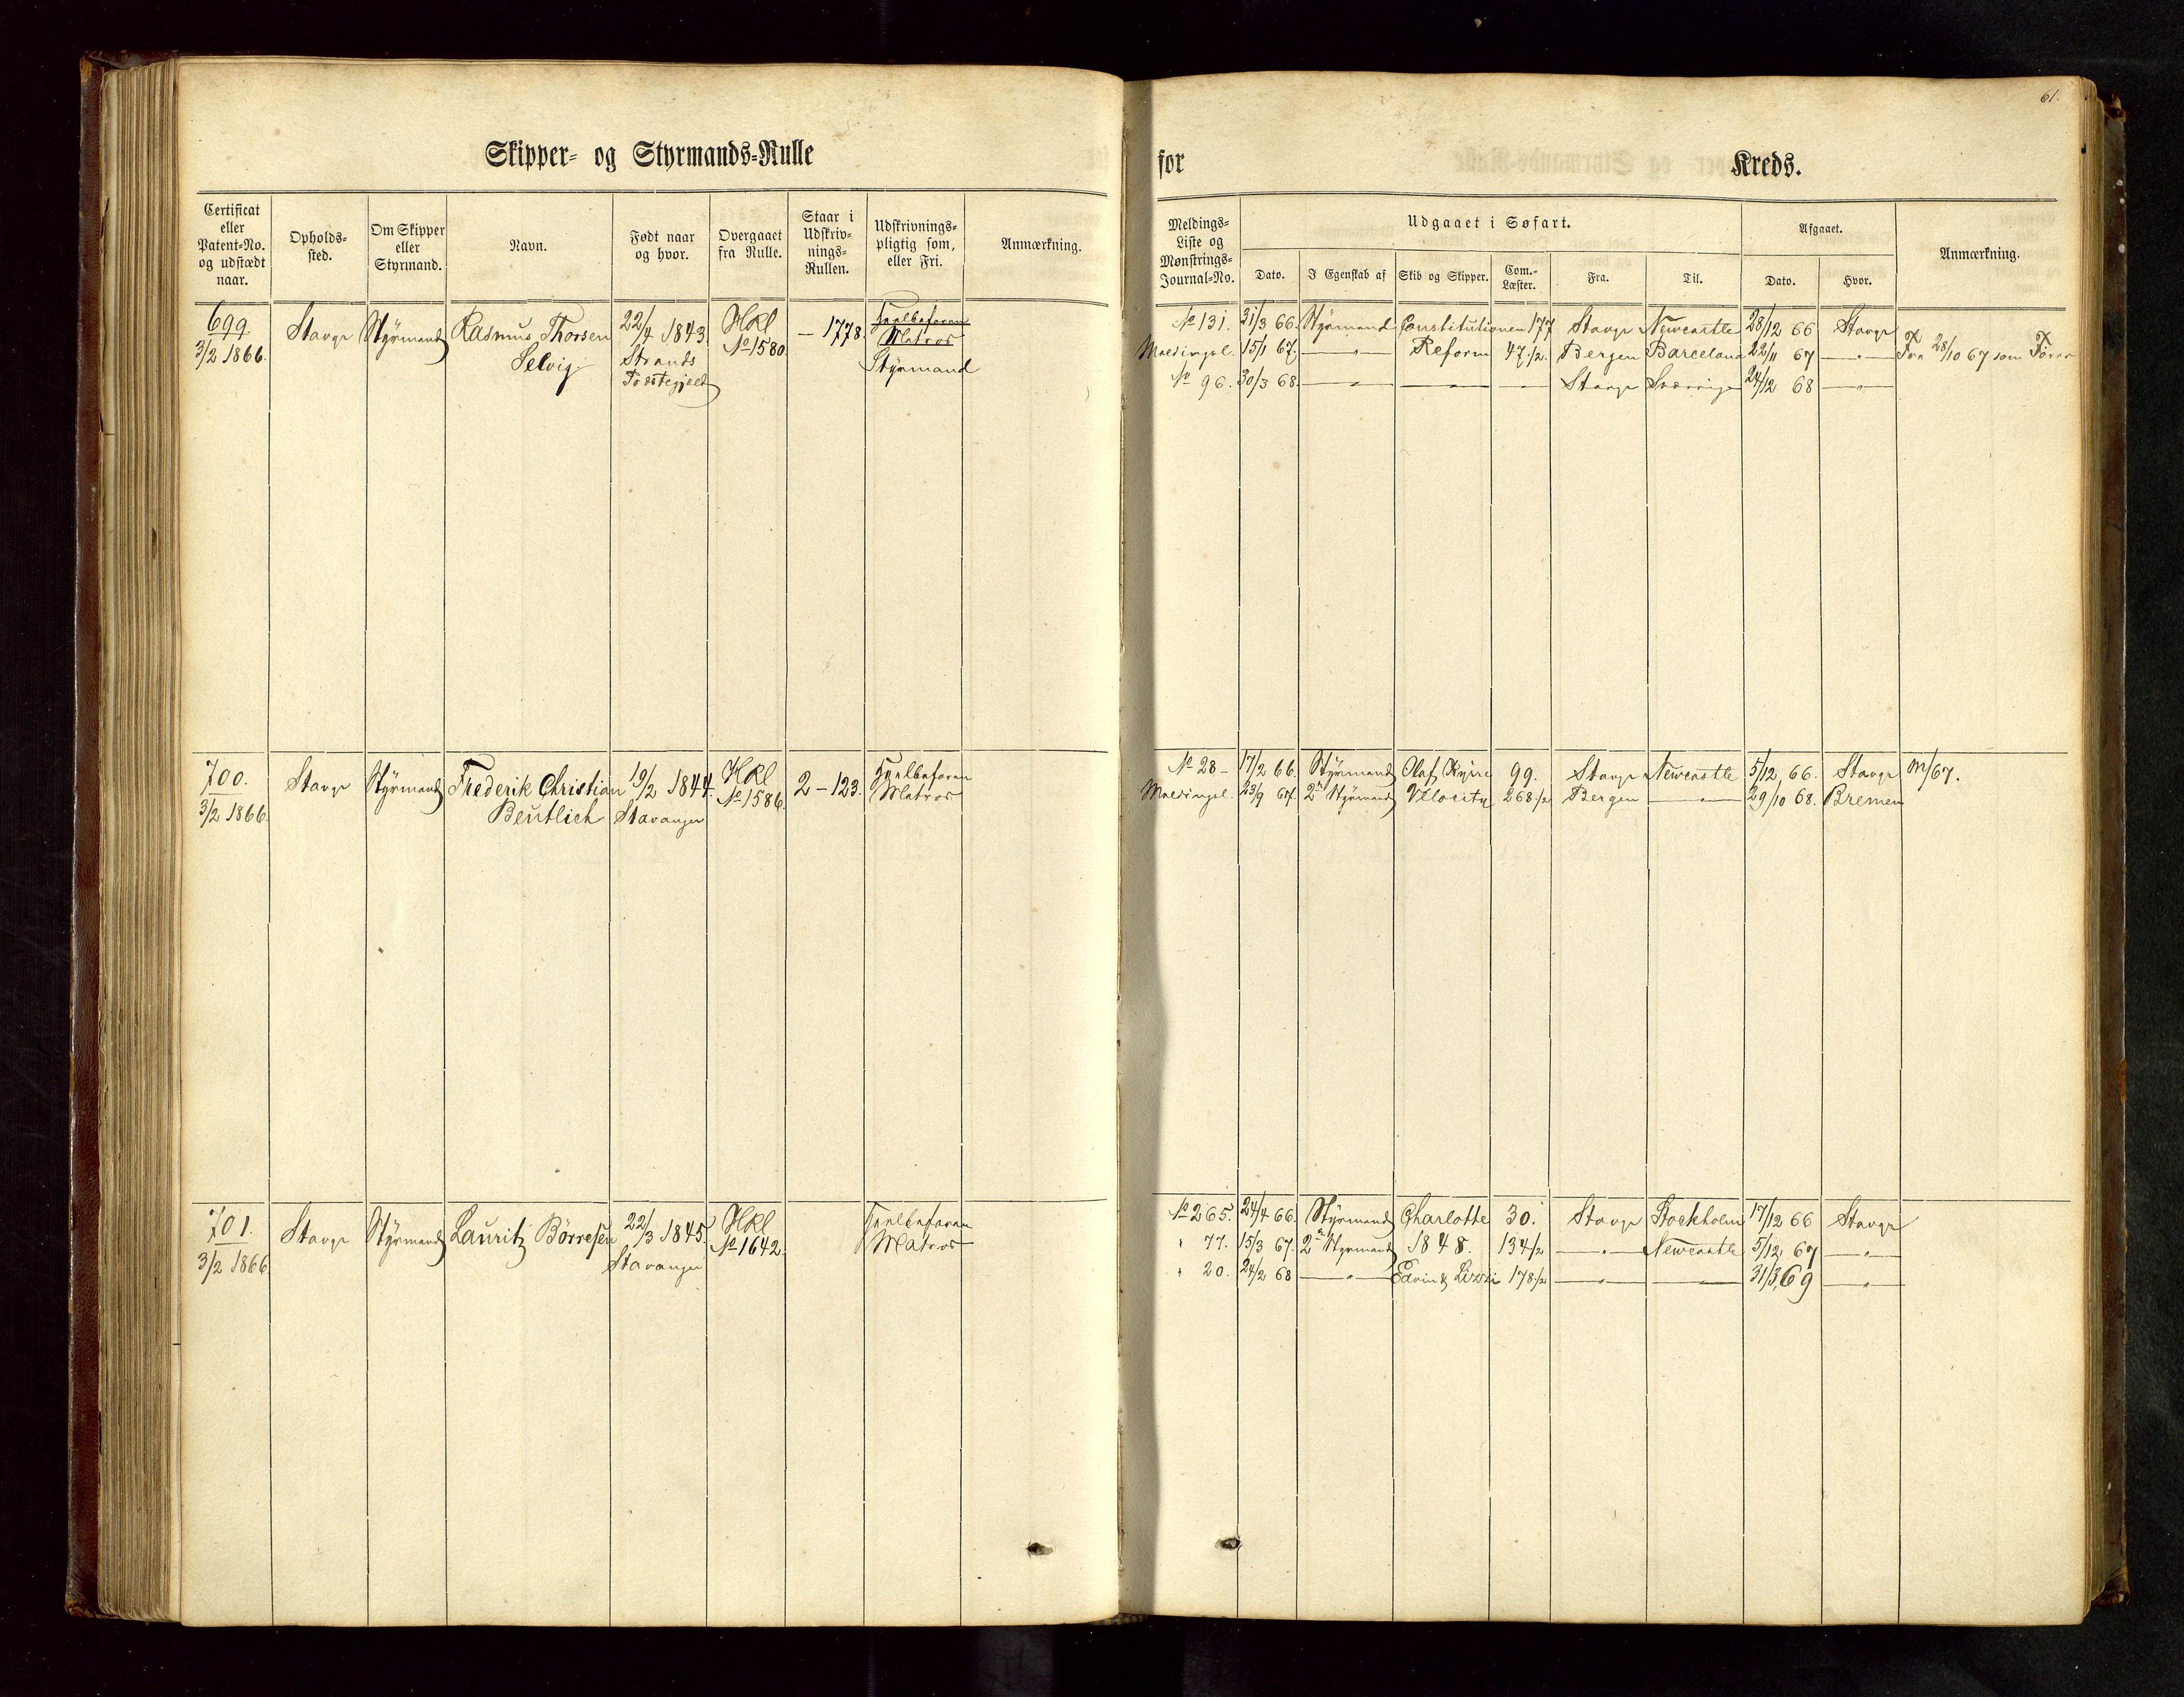 61.
Skipper- og Styrmands-Rulle
for Kreds.
Certificat eller Patent-No. og udstædt naar.
Opholds-sted.
Om Skipper eller Styrmand.
Navn.
Født naar og hvor.
Overgaaet fra Rulle.
Staar i Udskriv-nings-Rullen.
Udskrivnings-pligtig som, eller Fri.
Anmærkning.
Meldings-Liste og Mønstrings-Journal-No.
Udgaaet i Søfart.
Dato.
I Egenskab af
Skib og Skipper.
Com.-Læster.
Fra.
Til.
Afgaaet.
Dato.
Hvor.
Anmærkning.
699. Stavgr Styrmand Rasmus Thorsen 22/4 1843. HRl — 1778. Fuldbefaren
3/2 1866. Selvig. Strands No 1580 Matros
Præstegjeld Styrmand
No 131. 31/3 66. Styrmand Constitutionen 177 Stavgr Newcastle 28/12 66 Stavgr
Meldingsl. 15/1 67. —„— Reform 47 1/2. Bergen Barcelona 22/11 67 —„— Fra 28/10 67 som Fører
No 96. 30/3 68. —„— —„— —„— Stavgr Sverrige 24/12 68 —„—
700. Stavgr Styrmand Frederik Christian 19/2 1844. HRl 2 – 123. Fuldbefaren
3/2 1866. Beutlich Stavanger No 1586. Matros
No 28 – 17/2 66. Styrmand Olaf Kyrre 99. Stavgr Newcastle 5/12 66. Stavgr m/67.
Meldingsl. 23/9 67. 2n Styrmand Velocity 268 1/2 Bergen —„— 29/10 68. Bremen
701. Stavgr Styrmand Lauritz Børresen 22/3 1845. HRl Fuldbefaren
3/2 1866. Stavanger No 1642. Matros
No 265. 24/4 66. Styrmand Charlotte 30. Stavgr Stockholm 17/12 66 Stavgr
„ 77. 15/3 67. 2n Styrmand 1848. 134 1/2 —„— Newcastle 5/12 67 —„—
„ 20. 24/2 68 —„— Edvin & Lizzi 178 1/2 —„— —„— 31/3 69 —„—